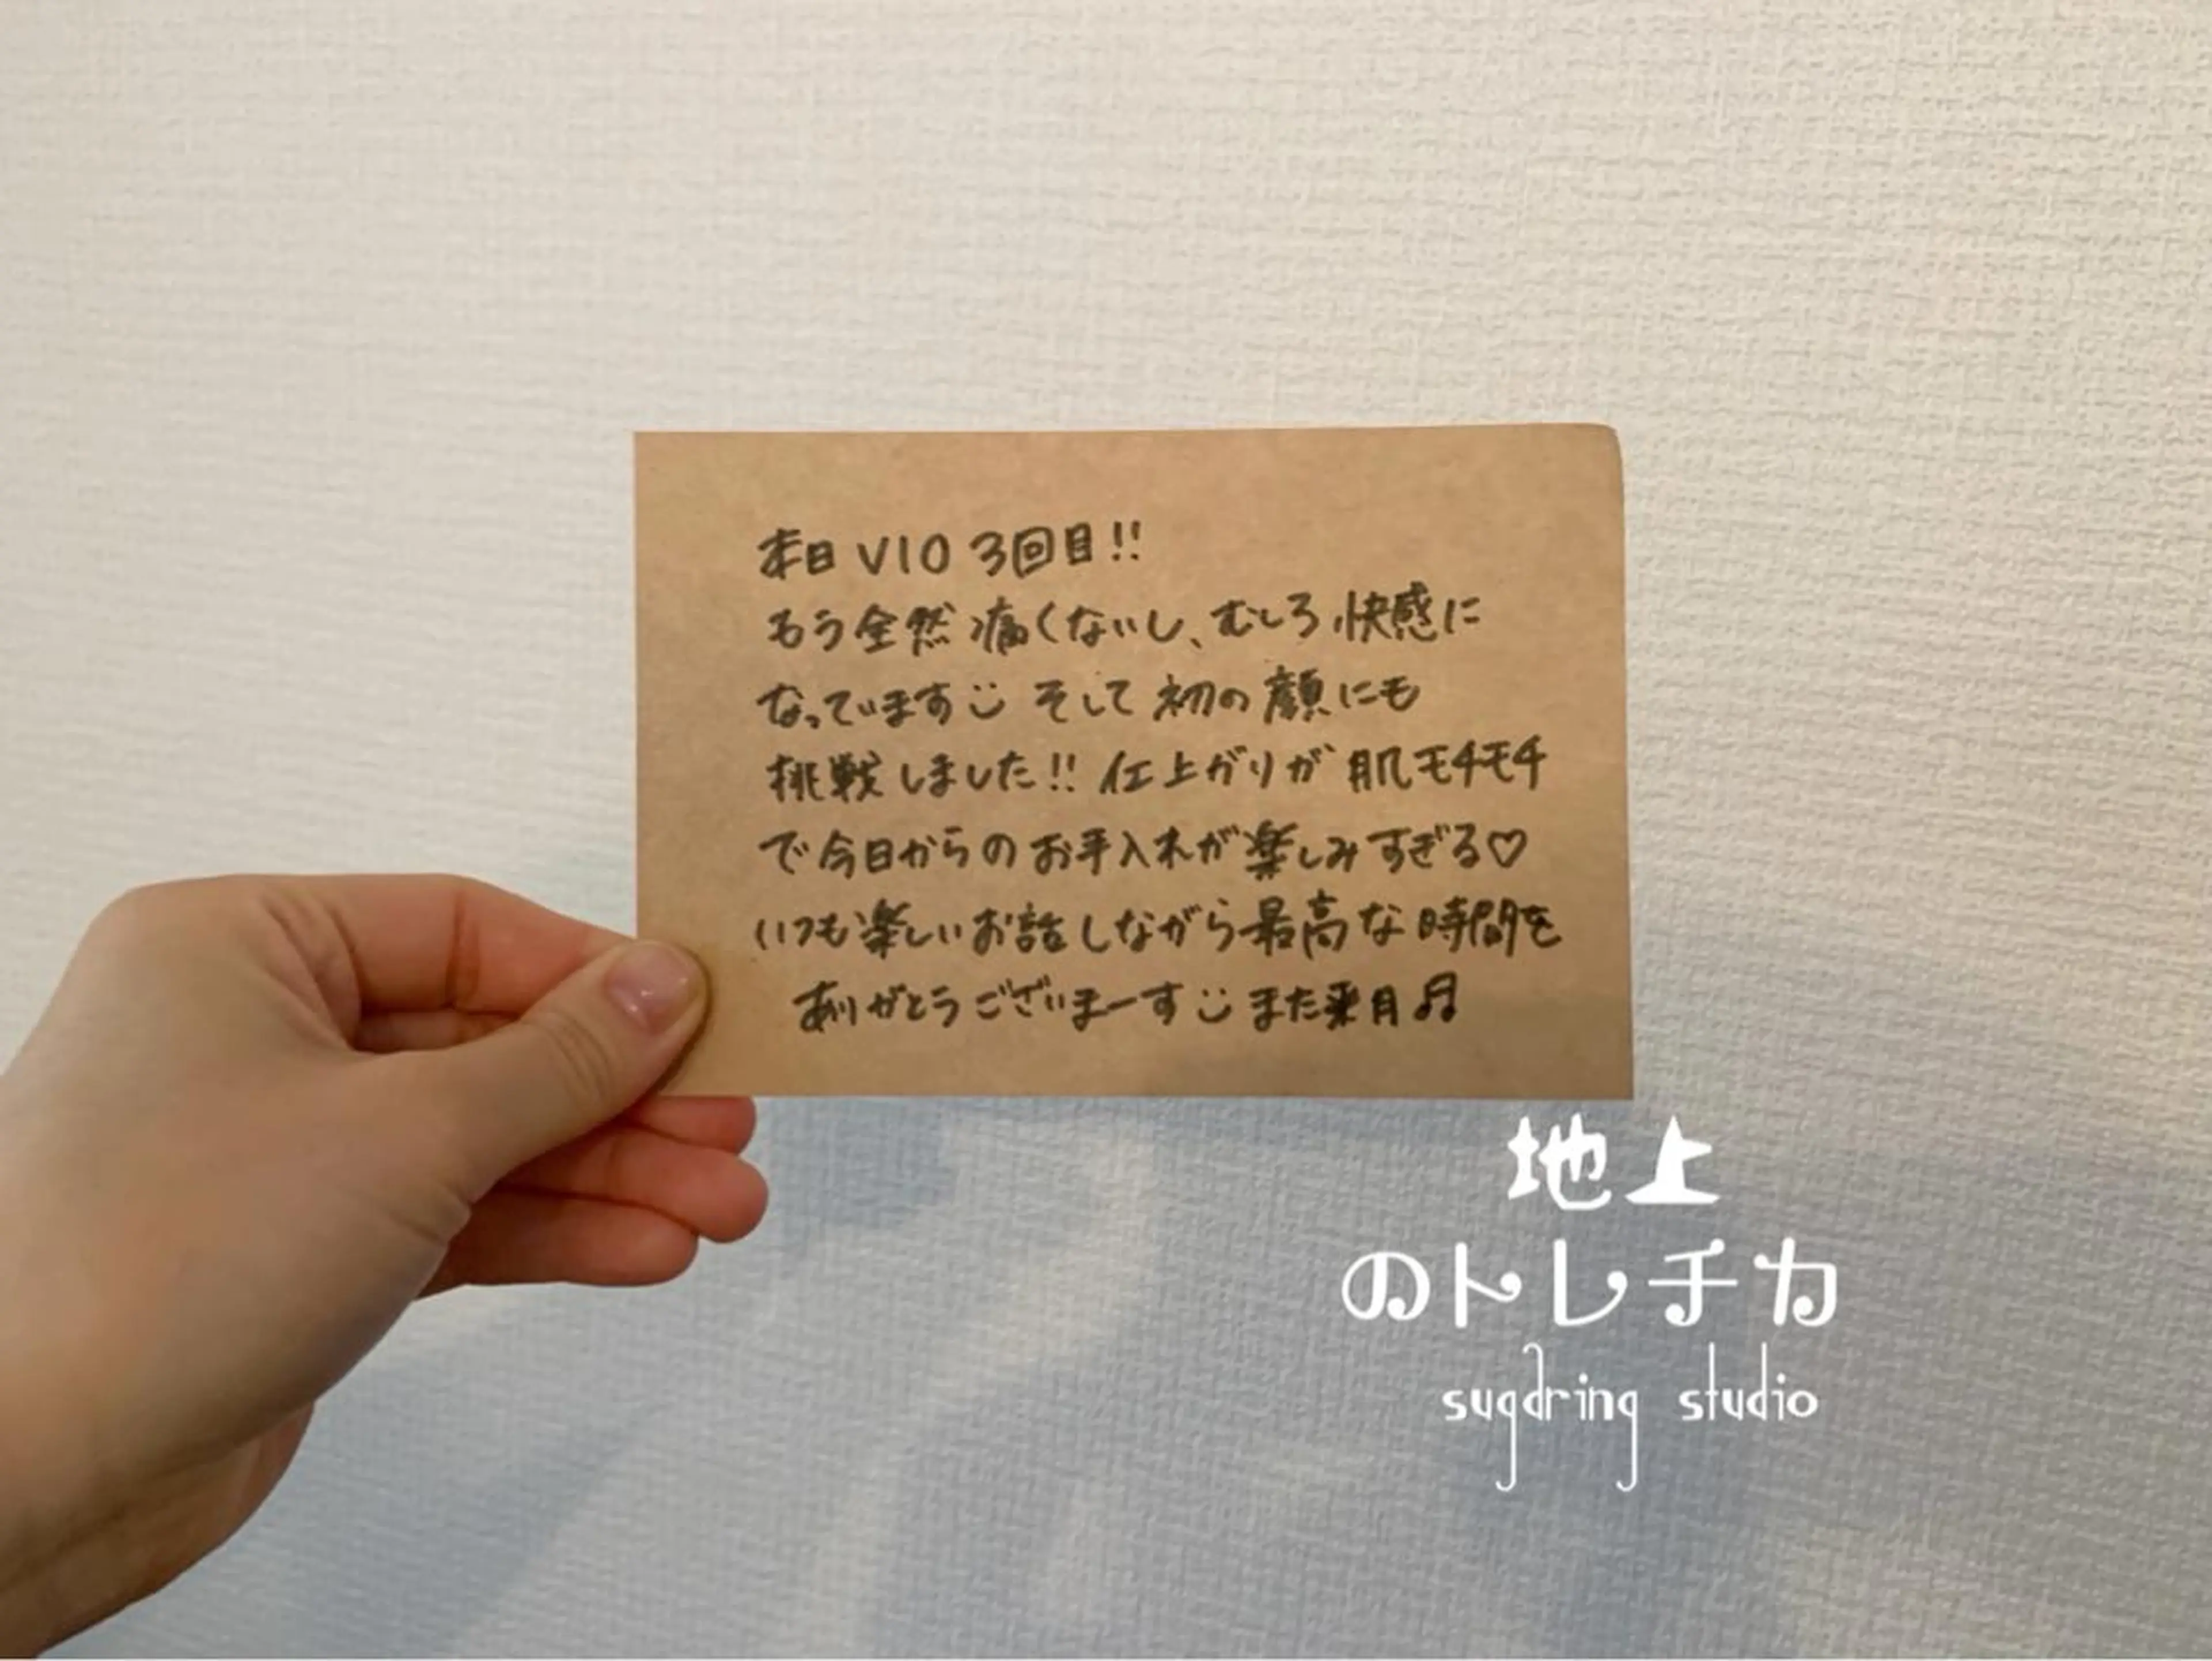 本日 VIO 3回目!!
もう全然痛くないし、むしろ快感に
なっています そして初の顔にも
挑戦しました!! 仕上がりが肌モチモチ
で今日からのお手入れが楽しみすぎる♡
いつも楽しいお話しながら最高な時間を
ありがとうございまーす また来月♫
地上
のトレチカ
sugaring studio